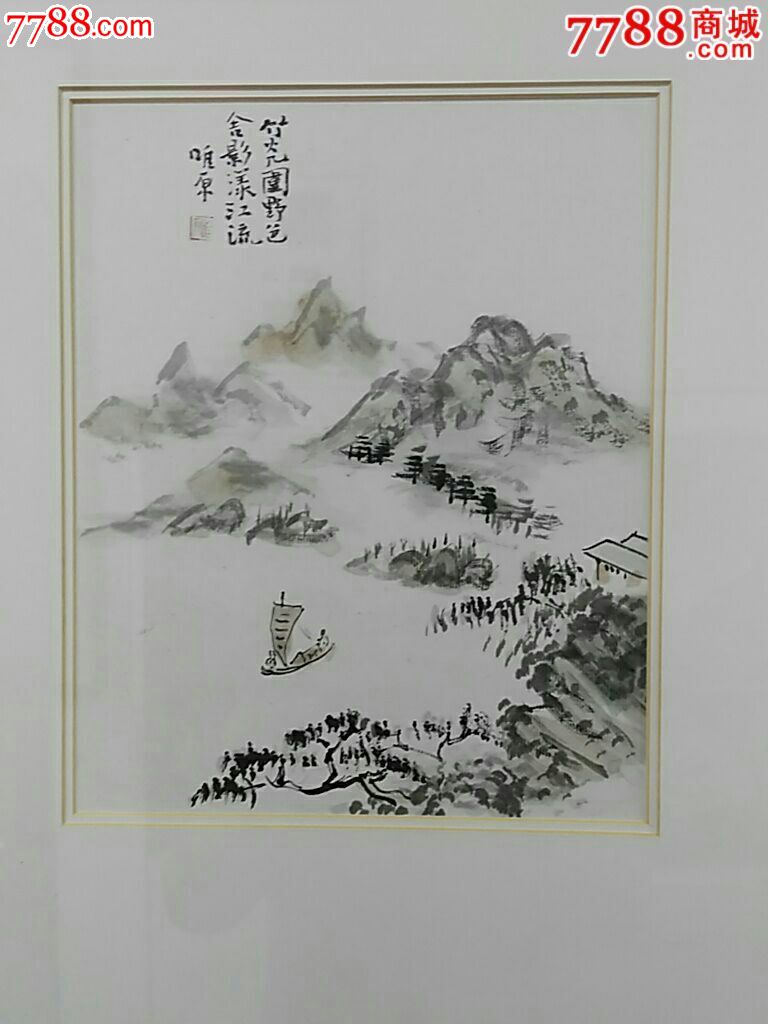 7788.com
7788商城
.com
竹光團野色
舍影漾江流
唯原